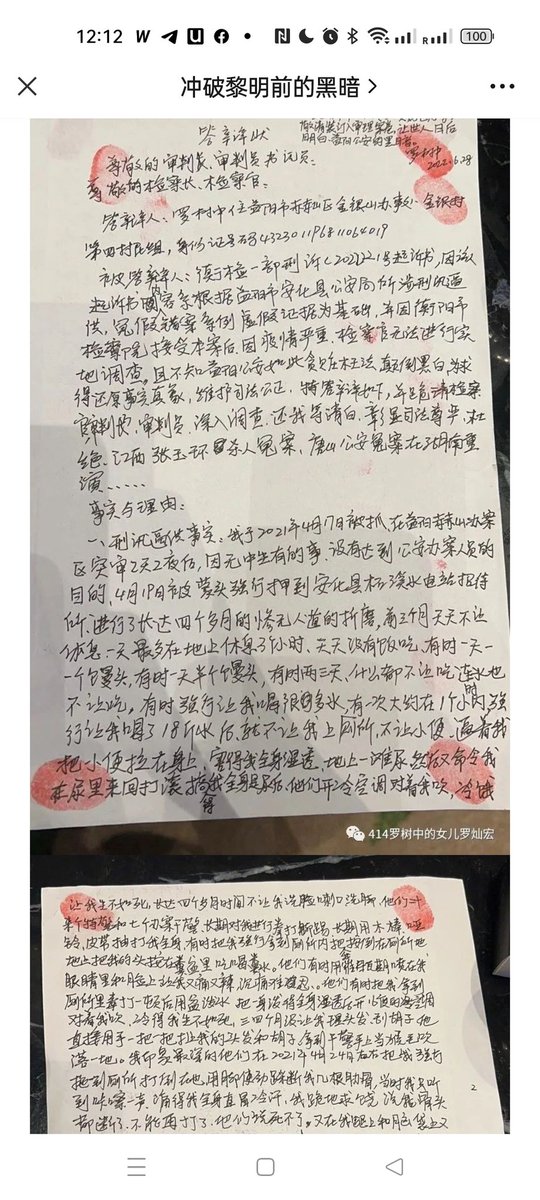 12:12
100
冲破黎明前的黑暗
答辩状
敬请装订入审理案卷,让世人日后
明白益阳公安的黑暗。
罗树中
2022.6.28
尊敬的审判长、审判员、书记员:
尊敬的检察长、检察官:
答辩人:罗树中住益阳市赫山区金银山办事处金银山村
第四村民组,身份证号码432301196811064019
起诉书内容系根据益阳市安化县公安局所谓刑讯逼
供,冤假错案条例虚假证据为基础,并因衡阳市
检察院接受本案后,因疫情严重,检察官无法进行实
地调查。且不知益阳公安如此贪赃枉法,颠倒黑白,为求
得还原事实真象,维护司法公正,特答辩如下,并恳请检察
官、审判长、审判员,深入调查,还我等清白,彰显司法尊严,杜
绝江西张玉环杀人冤案,唐山公安冤案在湖南重
演……
事实与理由:
一、刑讯逼供事实:我于2021年4月17日被抓,在益阳赫山办案
区突审2天2夜后,因无中生有的事,没有达到公安办案人员的
目的,4月19日被蒙头强行押到安化县柘溪水电站招待
所,进行了长达四个多月的惨无人道的折磨,前三个月天天不让
休息,一天最多在地上休息3个小时、天天没有饭吃,有时一天
一个馒头,有时一天半个馒头,有时两三天,什么都不让吃,连水也
不让吃。有时强行让我喝很多水,有一次大约在1个小时,强
行让我喝了18斤水后,就不让我上厕所,不让小便,逼着我
把小便拉在身上,害得我全身湿透,地上一滩尿,然后又命令我
在尿里来回打滚,搞得我全身是尿后,他们开冷空调对着我吹,冷饿
414罗树中的女儿罗灿宏
让我生不如死,长达四个多月时间不让我洗脸漱口洗脚,他们一十
来个特警和七个办案干警,长期对我进行拳打脚踢,长期用木棒、哑
铃、皮带抽打我全身,有时把我强行拿到厕所内把我按倒在厕所地
地上把我的头按在粪盆里吃喝粪水。他们有时用辣喷在我
眼睛里和脸上让我又痛又辣,沉痛难忍。他们有时把我拿到
厕所里毒打一顿后用盆泼水把身泼得全身湿透后开空调
对着我吹,冷得我生不如死,三四个月没让我理头发、刮胡子他
直接用手一把一把扯我的头发和胡子,拿到干警手上当着我吹
落一地。我印象最深的他们在2021年4月24号左右把我强行
拖到厕所打倒在地,用脚使劲踩断我几根肋骨,当时我只听
到咔嚓一声,痛得我全身直冒冷汗,我跪地求饶,说我骨头
都断了,不能再打了,他们说死不了。又在我腿上和胳膊上又
2